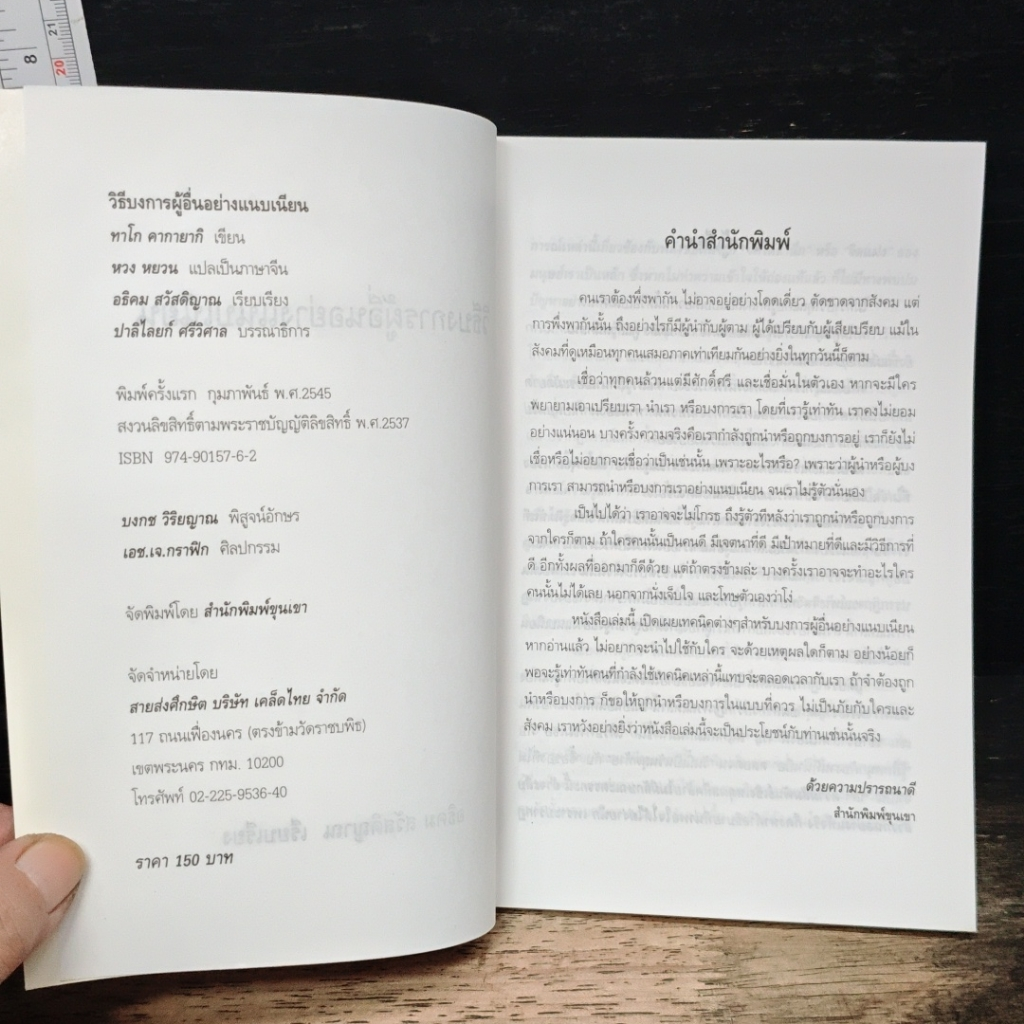 8
21
20
วิธีบงการผู้อื่นอย่างแนบเนียน
ทาโก คากายากิ เขียน
หวง หยวน แปลเป็นภาษาจีน
อธิคม สวัสดิญาณ เรียบเรียง
ปาลิไลยก์ ศรีวิศาล บรรณาธิการ
พิมพ์ครั้งแรก กุมภาพันธ์ พ.ศ.2545
สงวนลิขสิทธิ์ตามพระราชบัญญัติลิขสิทธิ์ พ.ศ.2537
ISBN 974-90157-6-2
บงกช วิริยญาณ พิสูจน์อักษร
เอช.เจ.กราฟิก ศิลปกรรม
จัดพิมพ์โดย สำนักพิมพ์ขุนเขา
จัดจำหน่ายโดย
สายส่งศึกษิต บริษัท เคล็ดไทย จำกัด
117 ถนนเฟื่องนคร (ตรงข้ามวัดราชบพิธ)
เขตพระนคร กทม. 10200
โทรศัพท์ 02-225-9536-40
ราคา 150 บาท
คำนำสำนักพิมพ์
คนเราต้องพึ่งพากัน ไม่อาจอยู่อย่างโดดเดี่ยว ตัดขาดจากสังคม แต่
การพึ่งพากันนั้น ถึงอย่างไรก็มีผู้นำกับผู้ตาม ผู้ได้เปรียบกับผู้เสียเปรียบ แม้ใน
สังคมที่ดูเหมือนทุกคนเสมอภาคเท่าเทียมกันอย่างยิ่งในทุกวันนี้ก็ตาม
เชื่อว่าทุกคนล้วนแต่มีศักดิ์ศรี และเชื่อมั่นในตัวเอง หากจะมีใคร
พยายามเอาเปรียบเรา นำเรา หรือบงการเรา โดยที่เรารู้เท่าทัน เราคงไม่ยอม
อย่างแน่นอน บางครั้งความจริงคือเรากำลังถูกนำหรือถูกบงการอยู่ เราก็ยังไม่
เชื่อหรือไม่อยากจะเชื่อว่าเป็นเช่นนั้น เพราะอะไรหรือ? เพราะว่าผู้นำหรือผู้บง
การเรา สามารถนำหรือบงการเราอย่างแนบเนียน จนเราไม่รู้ตัวนั่นเอง
เป็นไปได้ว่า เราอาจจะไม่โกรธ ถึงรู้ตัวทีหลังว่าเราถูกนำหรือถูกบงการ
จากใครก็ตาม ถ้าใครคนนั้นเป็นคนดี มีเจตนาที่ดี มีเป้าหมายที่ดีและมีวิธีการที่
ดี อีกทั้งผลที่ออกมาก็ดีด้วย แต่ถ้าตรงข้ามล่ะ บางครั้งเราอาจจะทำอะไรใคร
คนนั้นไม่ได้เลย นอกจากนั่งเจ็บใจ และโทษตัวเองว่าโง่
หนังสือเล่มนี้ เปิดเผยเทคนิคต่างๆสำหรับบงการผู้อื่นอย่างแนบเนียน
หากอ่านแล้ว ไม่อยากจะนำไปใช้กับใคร จะด้วยเหตุผลใดก็ตาม อย่างน้อยก็
พอจะรู้เท่าทันคนที่กำลังใช้เทคนิคเหล่านี้แทบจะตลอดเวลากับเรา ถ้าจำต้องถูก
นำหรือบงการ ก็ขอให้ถูกนำหรือบงการในแบบที่ควร ไม่เป็นภัยกับใครและ
สังคม เราหวังอย่างยิ่งว่าหนังสือเล่มนี้จะเป็นประโยชน์กับท่านเช่นนั้นจริง
ด้วยความปรารถนาดี
สำนักพิมพ์ขุนเขา